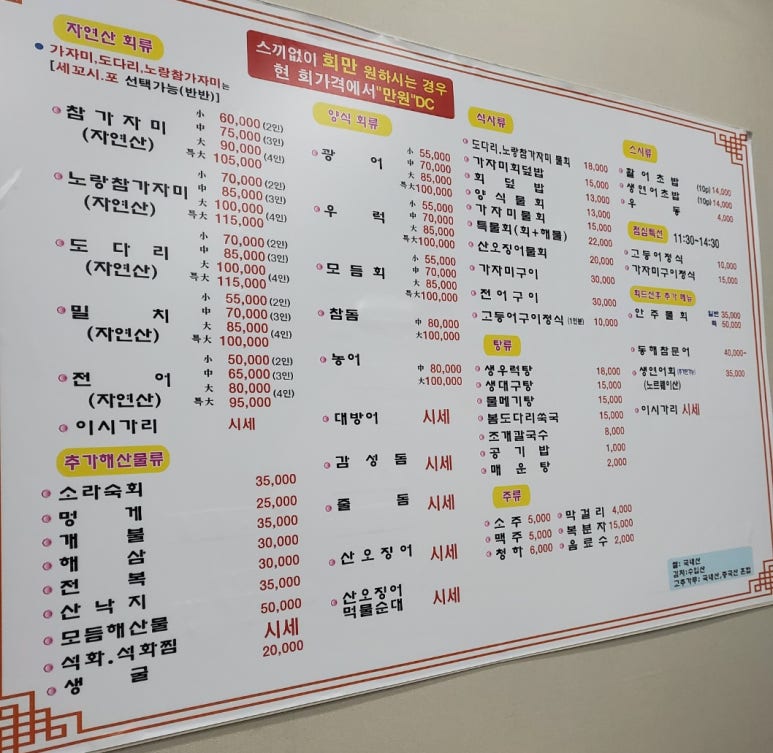 자연산 회류
가자미,도다리,노랑참가자미는
[세꼬시.포 선택가능(반반)]
참가자미
(자연산)
小 60,000 (2인)
中 75,000 (3인)
大 90,000
특大 105,000 (4인)
노랑참가자미
(자연산)
小 70,000 (2인)
中 85,000 (3인)
大 100,000
특大 115,000 (4인)
도다리
(자연산)
小 70,000 (2인)
中 85,000 (3인)
大 100,000
특大 115,000 (4인)
밀치
(자연산)
小 55,000 (2인)
中 70,000 (3인)
大 85,000
특大 100,000 (4인)
전어
(자연산)
小 50,000 (2인)
中 65,000 (3인)
大 80,000
특大 95,000 (4인)
이시가리 시세
추가해산물류
소라숙회 35,000
멍게 25,000
개불 35,000
해삼 30,000
전복 30,000
산낙지 35,000
모듬해산물 50,000
석화.석화찜 시세
생굴 20,000
스끼없이 회만 원하시는 경우
현 회가격에서"만원"DC
양식 회류
광어
小 55,000
中 70,000
大 85,000
특大100,000
우럭
小 55,000
中 70,000
大 85,000
특大100,000
모듬회
小 55,000
中 70,000
大 85,000
특大100,000
참돔
中 80,000
大100,000
농어
中 80,000
大100,000
대방어 시세
감성돔 시세
줄돔 시세
산오징어 시세
산오징어
먹물순대 시세
식사류
도다리,노랑참가자미 물회 18,000
가자미회덮밥 15,000
회덮밥 13,000
양식물회 13,000
가자미물회 15,000
특물회(회+해물) 22,000
산오징어물회 20,000
가자미구이 30,000
전어구이 30,000
고등어구이정식 (1인분) 10,000
탕류
생우럭탕 18,000
생대구탕 15,000
물메기탕 15,000
봄도다리쑥국 15,000
조개칼국수 8,000
공기밥 1,000
매운탕 2,000
주류
소주 5,000 막걸리 4,000
맥주 5,000 복분자 15,000
청하 6,000 음료수 2,000
스시류
활어초밥 (10p) 14,000
생연어초밥 (10p) 14,000
우동 4,000
점심특선 11:30~14:30
고등어정식 10,000
가자미구이정식 15,000
추가 메뉴
안주물회 일반 35,000
특 50,000
동해참문어 40,000~
생연어회 35,000
(노르웨이산)
이시가리 시세
쌀: 국내산
김치:수입산
고추가루: 국내산,중국산 혼합